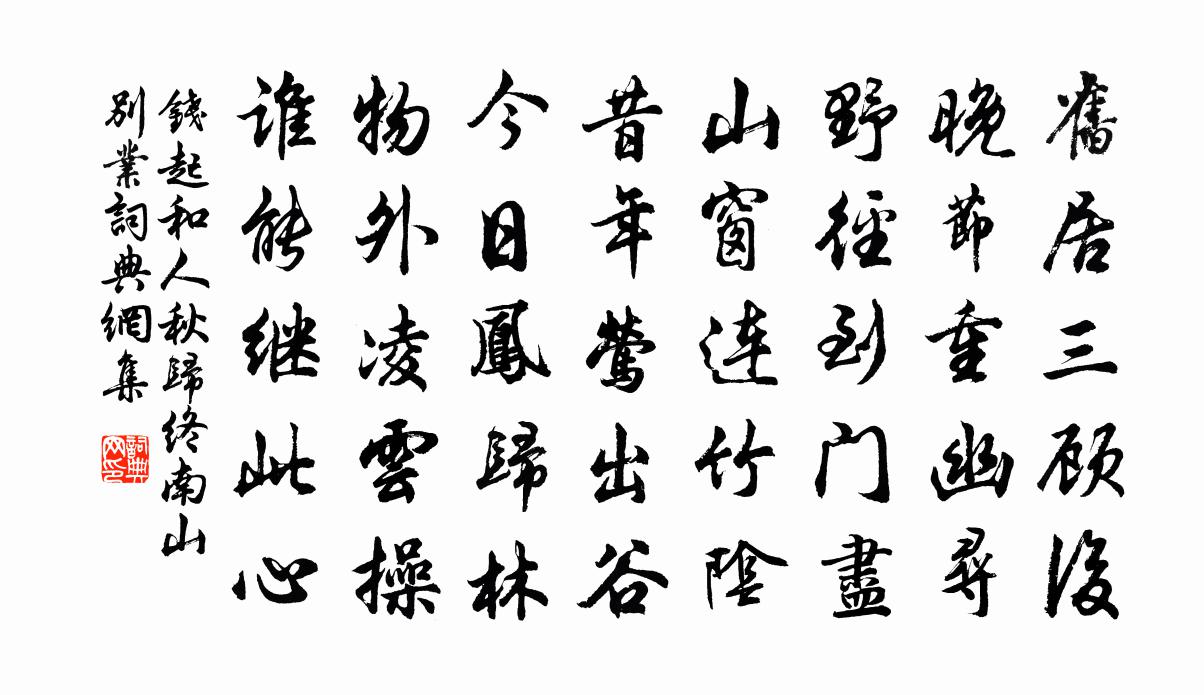 舊居三顾後
晚節重幽尋
野徑到门盡
山窗連竹陰
昔年鶯出谷
今日鳳歸林
物外凌雲操
谁能继此心
錢起和人秋歸终南山
别業詞典網集
詞典网印